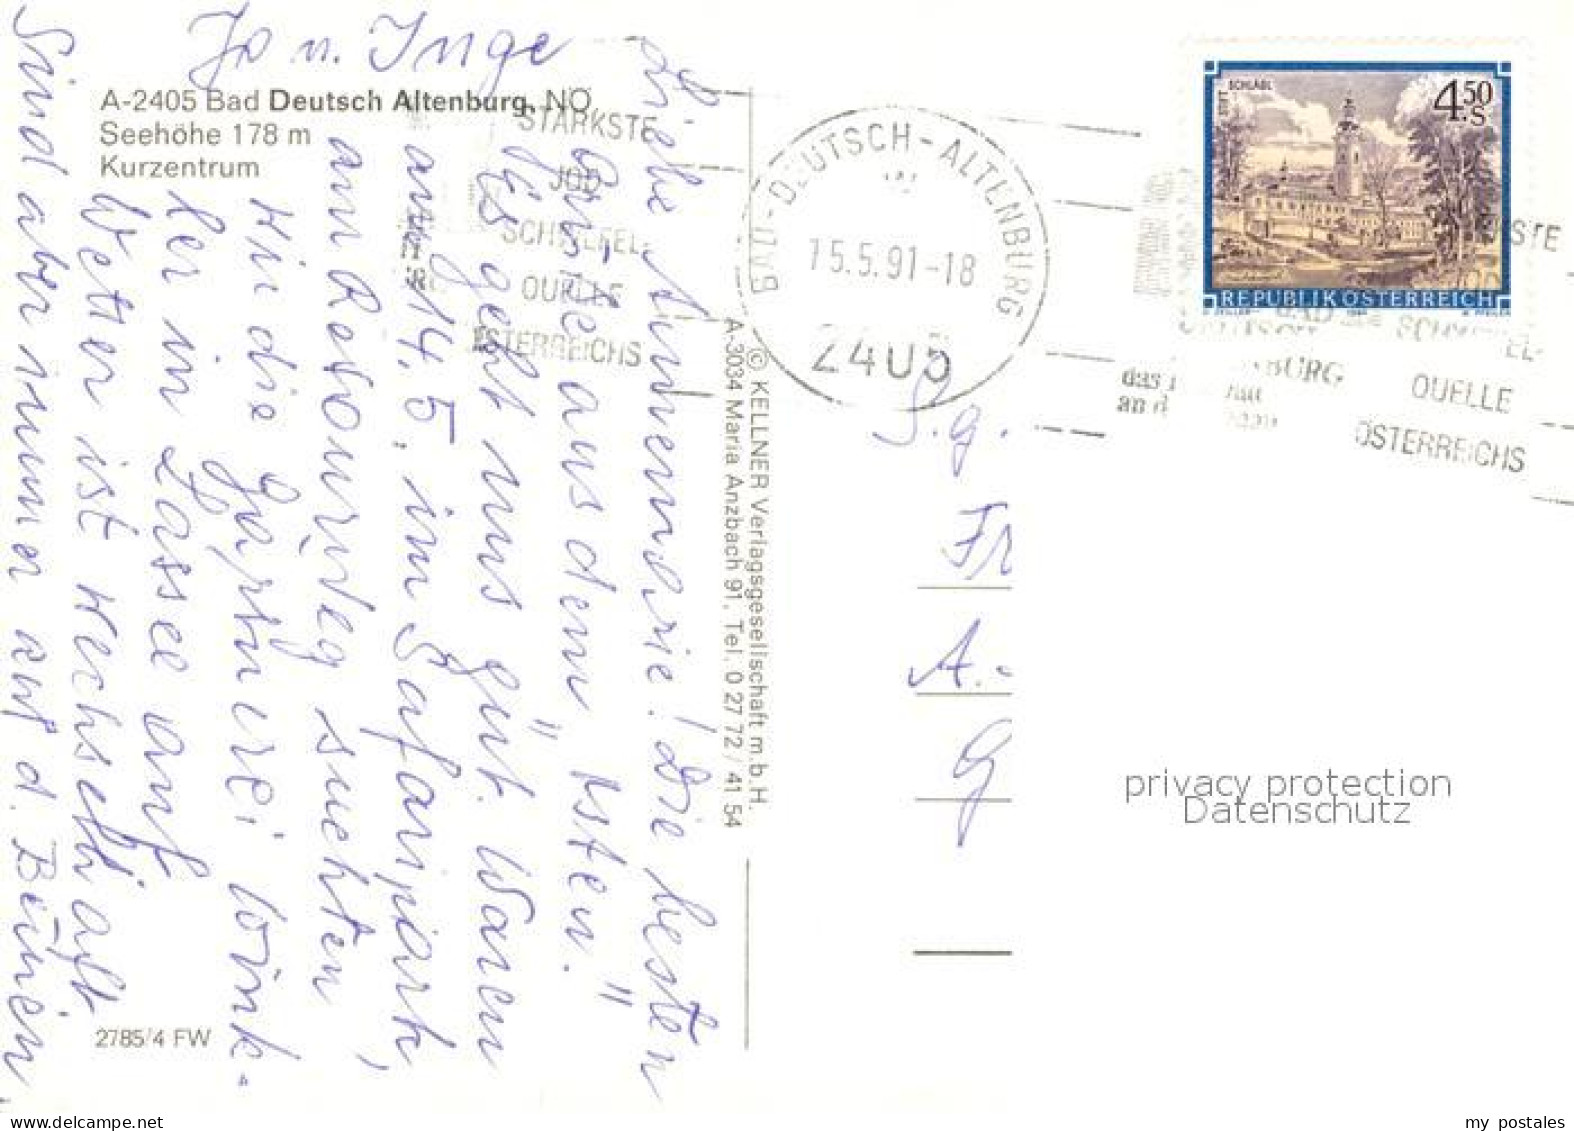 A-2405 Bad Deutsch Altenburg, NÖ
Seehöhe 178 m
Kurzentrum
Liebe Annemarie! Die besten
Grüße aus dem "Osten".
Es geht uns gut. Waren
am 14.5. im Safaripark,
am Retourweg suchten
wir die Gärtnerei Wink-
ler in Lassee auf.
Wetter ist wechselhaft.
Sind aber immer auf d. Beinen
Jo u. Inge
2785/4 FW
© KELLNER Verlagsgesellschaft m.b.H.
A-3034 Maria Anzbach 91, Tel. 0 27 72 / 41 54
STÄRKSTE
JOD
SCHWEFEL-
QUELLE
ÖSTERREICHS
BAD-DEUTSCH-ALTENBURG
15.5.91-18
2405
STIFT SCHLÄGL
4.50 S
REPUBLIK ÖSTERREICH
SCHWEFEL-
QUELLE
ÖSTERREICHS
S.g.
Fr
A.
G
privacy protection
Datenschutz
my postales